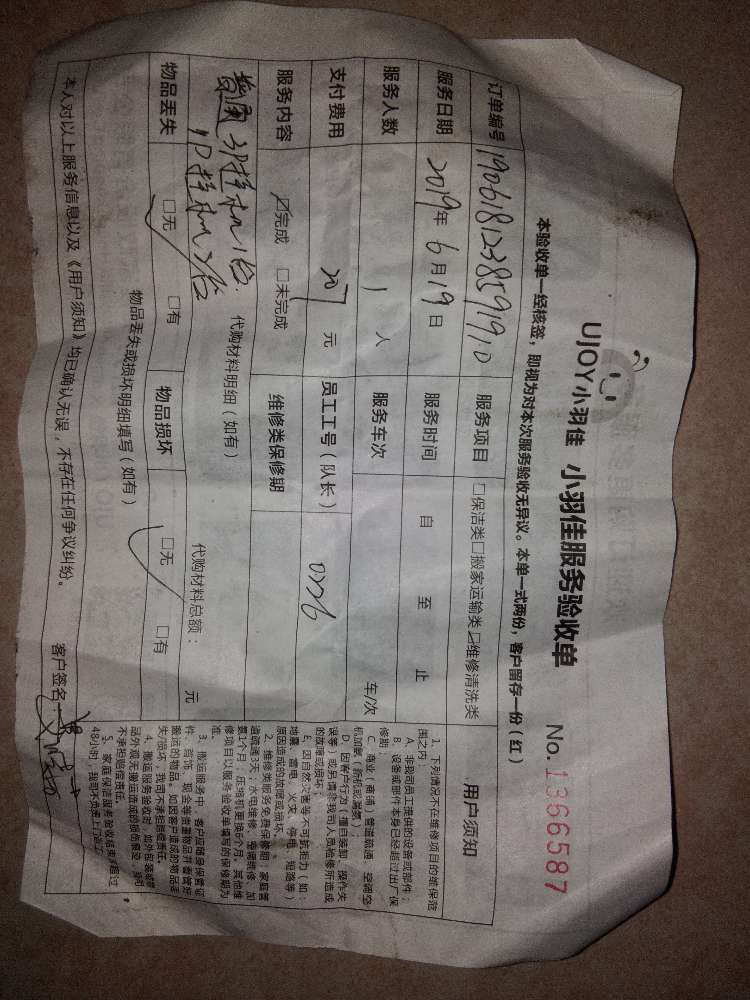 UJOY小羽佳 小羽佳服务验收单 No.1366587
本验收单一经核签,即视为对本次服务验收无异议。本单一式两份,客户留存一份(红)
订单编号 服务项目 □保洁类□搬家运输类☑维修清洗类
服务日期 2019年6月19日 服务时间 自 至 止
服务人数 1 人 服务车次 车/次
支付费用 元 员工工号(队长) 0226
服务内容 ☑完成 □未完成 维修类保修期
代购材料明细(如有) 代购材料总额: 元
挂机1台
挂机2台
物品丢失 □无 □有 物品损坏 □无 □有
物品丢失或损坏明细填写(如有)
本人对以上服务信息以及《用户须知》均已确认无误,不存在任何争议纠纷。 客户签名:
用户须知
1、下列情况不在维修项目的维保范
围之内:
A、非我司员工提供的设备或部件;
B、设备或部件本身已经超过出厂保
修期;
C、商业(商铺)管道疏通、空调空
机加氟(新机或漏氟);
D、因客户行为(擅自装卸、操作失
误等)或另请非我司人员检修所造成
的故障或损坏;
E、因自然灾害等不可抗拒力(如:
地震、雷电、火灾、停电、短路等)
原因造成的故障或损坏。
2、维修类服务免费保修期:家庭管
道疏通3天;水电维修、空调维修、加
氨1个月,压缩机更换6个月。其他维
修项目以服务验收单填写的保修期为
准。
3、搬运服务中,客户应随身保管证
件、首饰、现金等贵重物品并看管好
搬运的物品。如因客户造成的物品丢
失/损坏,我司不承担赔偿责任。
4、搬运服务验收时,如外包装或物
品外观无搬运造成的损伤痕迹,我司
不承担赔偿责任。
5、家庭保洁服务验收结束,超过
48小时,我司不负责上门返工。